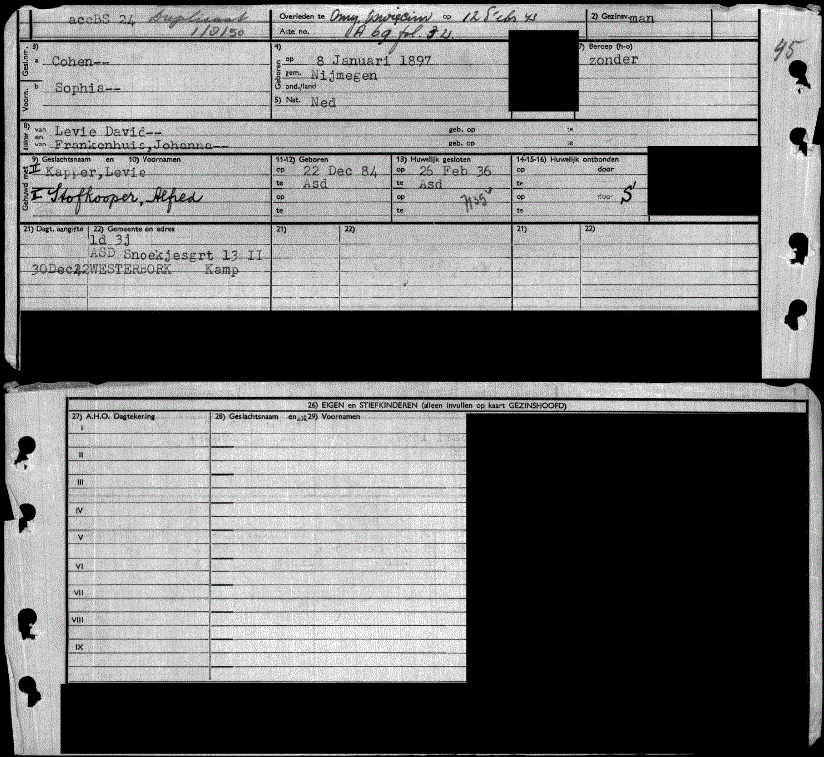 accBS 24 Duplicaat Overleden te Omg. Oswiecim op 12 Febr 43 2) Gezinsv. man
1/3/50 Acte no. A 69 fol. 34 45
Gesl.nm. 3) 4) 7) Beroep (h-o)
a Cohen-- Geboren op 8 Januari 1897 zonder
gem. Nijmegen
Voorn. b Sophia-- ond./land
5) Nat. Ned
8) van Levie David-- geb. op te
en
van Frankenhuis,Johanna-- geb. op te
Gehuwd met 9) Geslachtsnaam en 10) Voornamen 11-12) Geboren 13) Huwelijk gesloten 14-15-16) Huwelijk ontbonden
II Kapper,Levie op 22 Dec 84 op 26 Feb 36 op door
te Asd te Asd te
I Stofkooper, Alfred op op op door S
te te te
21) Dagt. aangifte 22) Gemeente en adres 21) 22) 21) 22)
1d 3j
ASD Snoekjesgrt 13 II
30Dec42 WESTERBORK Kamp
26) EIGEN en STIEFKINDEREN (alleen invullen op kaart GEZINSHOOFD)
27) A.H.O. Dagtekening 28) Geslachtsnaam en 29) Voornamen
I
II
III
IV
V
VI
VII
VIII
IX